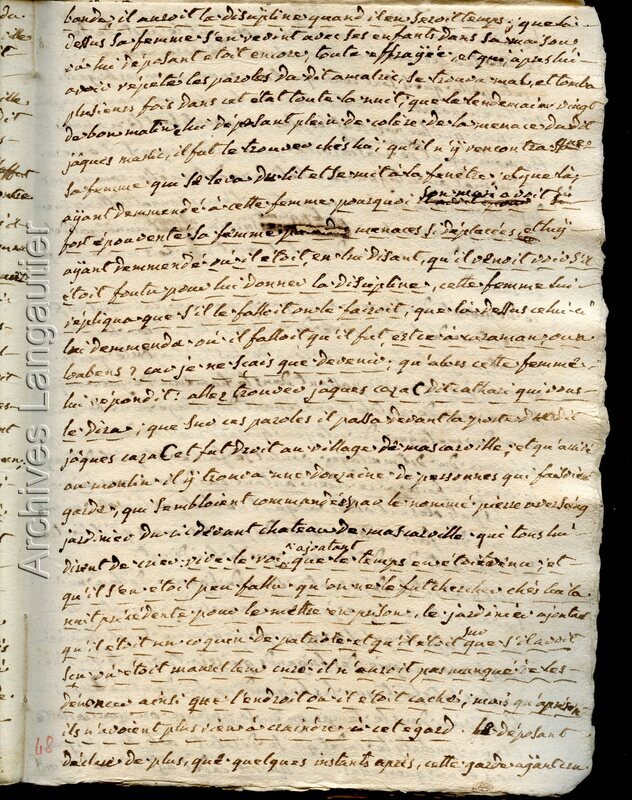 bande, il auroit la discipline quand il en seroit temps; que la
dessus sa femme s'en revint avec ses enfants dans sa maison
où lui déposant étoit encore, toute effrayée, et que, apres lui
avoir répété les paroles du dit amalric, se trouva mal, et tomba
plusieurs fois dans cet état toute la nuit; que le lendemain vingt
de bon matin lui déposant plein de colère de la menace du dit
jâques il fut le trouver chés lui, qu'il n'y rencontra que
sa femme qui se leva du lit et se mit à la fenêtre, et que là
ayant demmendé à cette femme pourquoi son mari avoit si
fort épouventé sa femme menaces si déplacées, et luy
ayant demmendé où il étoit, en lui disant, qu'il venoit voir s'il
étoit foutu pour lui donner la discipline, cette femme lui
répliqua que s'il le falloit on le fairoit, que là dessus celui ci
lui demmenda où il falloit qu'il fut, est ce à caraman, ou à
Vabens? car je ne scais que devenir; qu'alors cette femme
lui répondit: allez trouver jâques cazaC dit cathari qui vous
le dira; que sur ces paroles il passa devant la porte du dit
jâques cazaC et fut droit au village de mascarville, et qu'arrivé
au moulin il y trouva une douzaine de personnes qui faisoient
garde, qui sembloient commandés par le nommé pierre averseng
jardinier du ci devant chateau de mascarville, que tous lui
dirent de crier vive le roi, ajoutant que le temps en étoit venu, et
qu'il s'en étoit peu fallu qu'on ne le fut chercher chés lui la
nuit précédente pour le mettre en prison, le jardinier ajouta
qu'il étoit un coquin de patriote et qu'il étoit sur que s'il avoit
seu où étoit curé il n'auroit pas manqué de les
dénoncer ainsi que l'endroit où il étoit caché; mais qu'apresen
ils n'avoient plus rien à craindre à cet égard. le déposant
déclare de plus, que quelques instants après, cette garde ayant
48
Archives Langautier